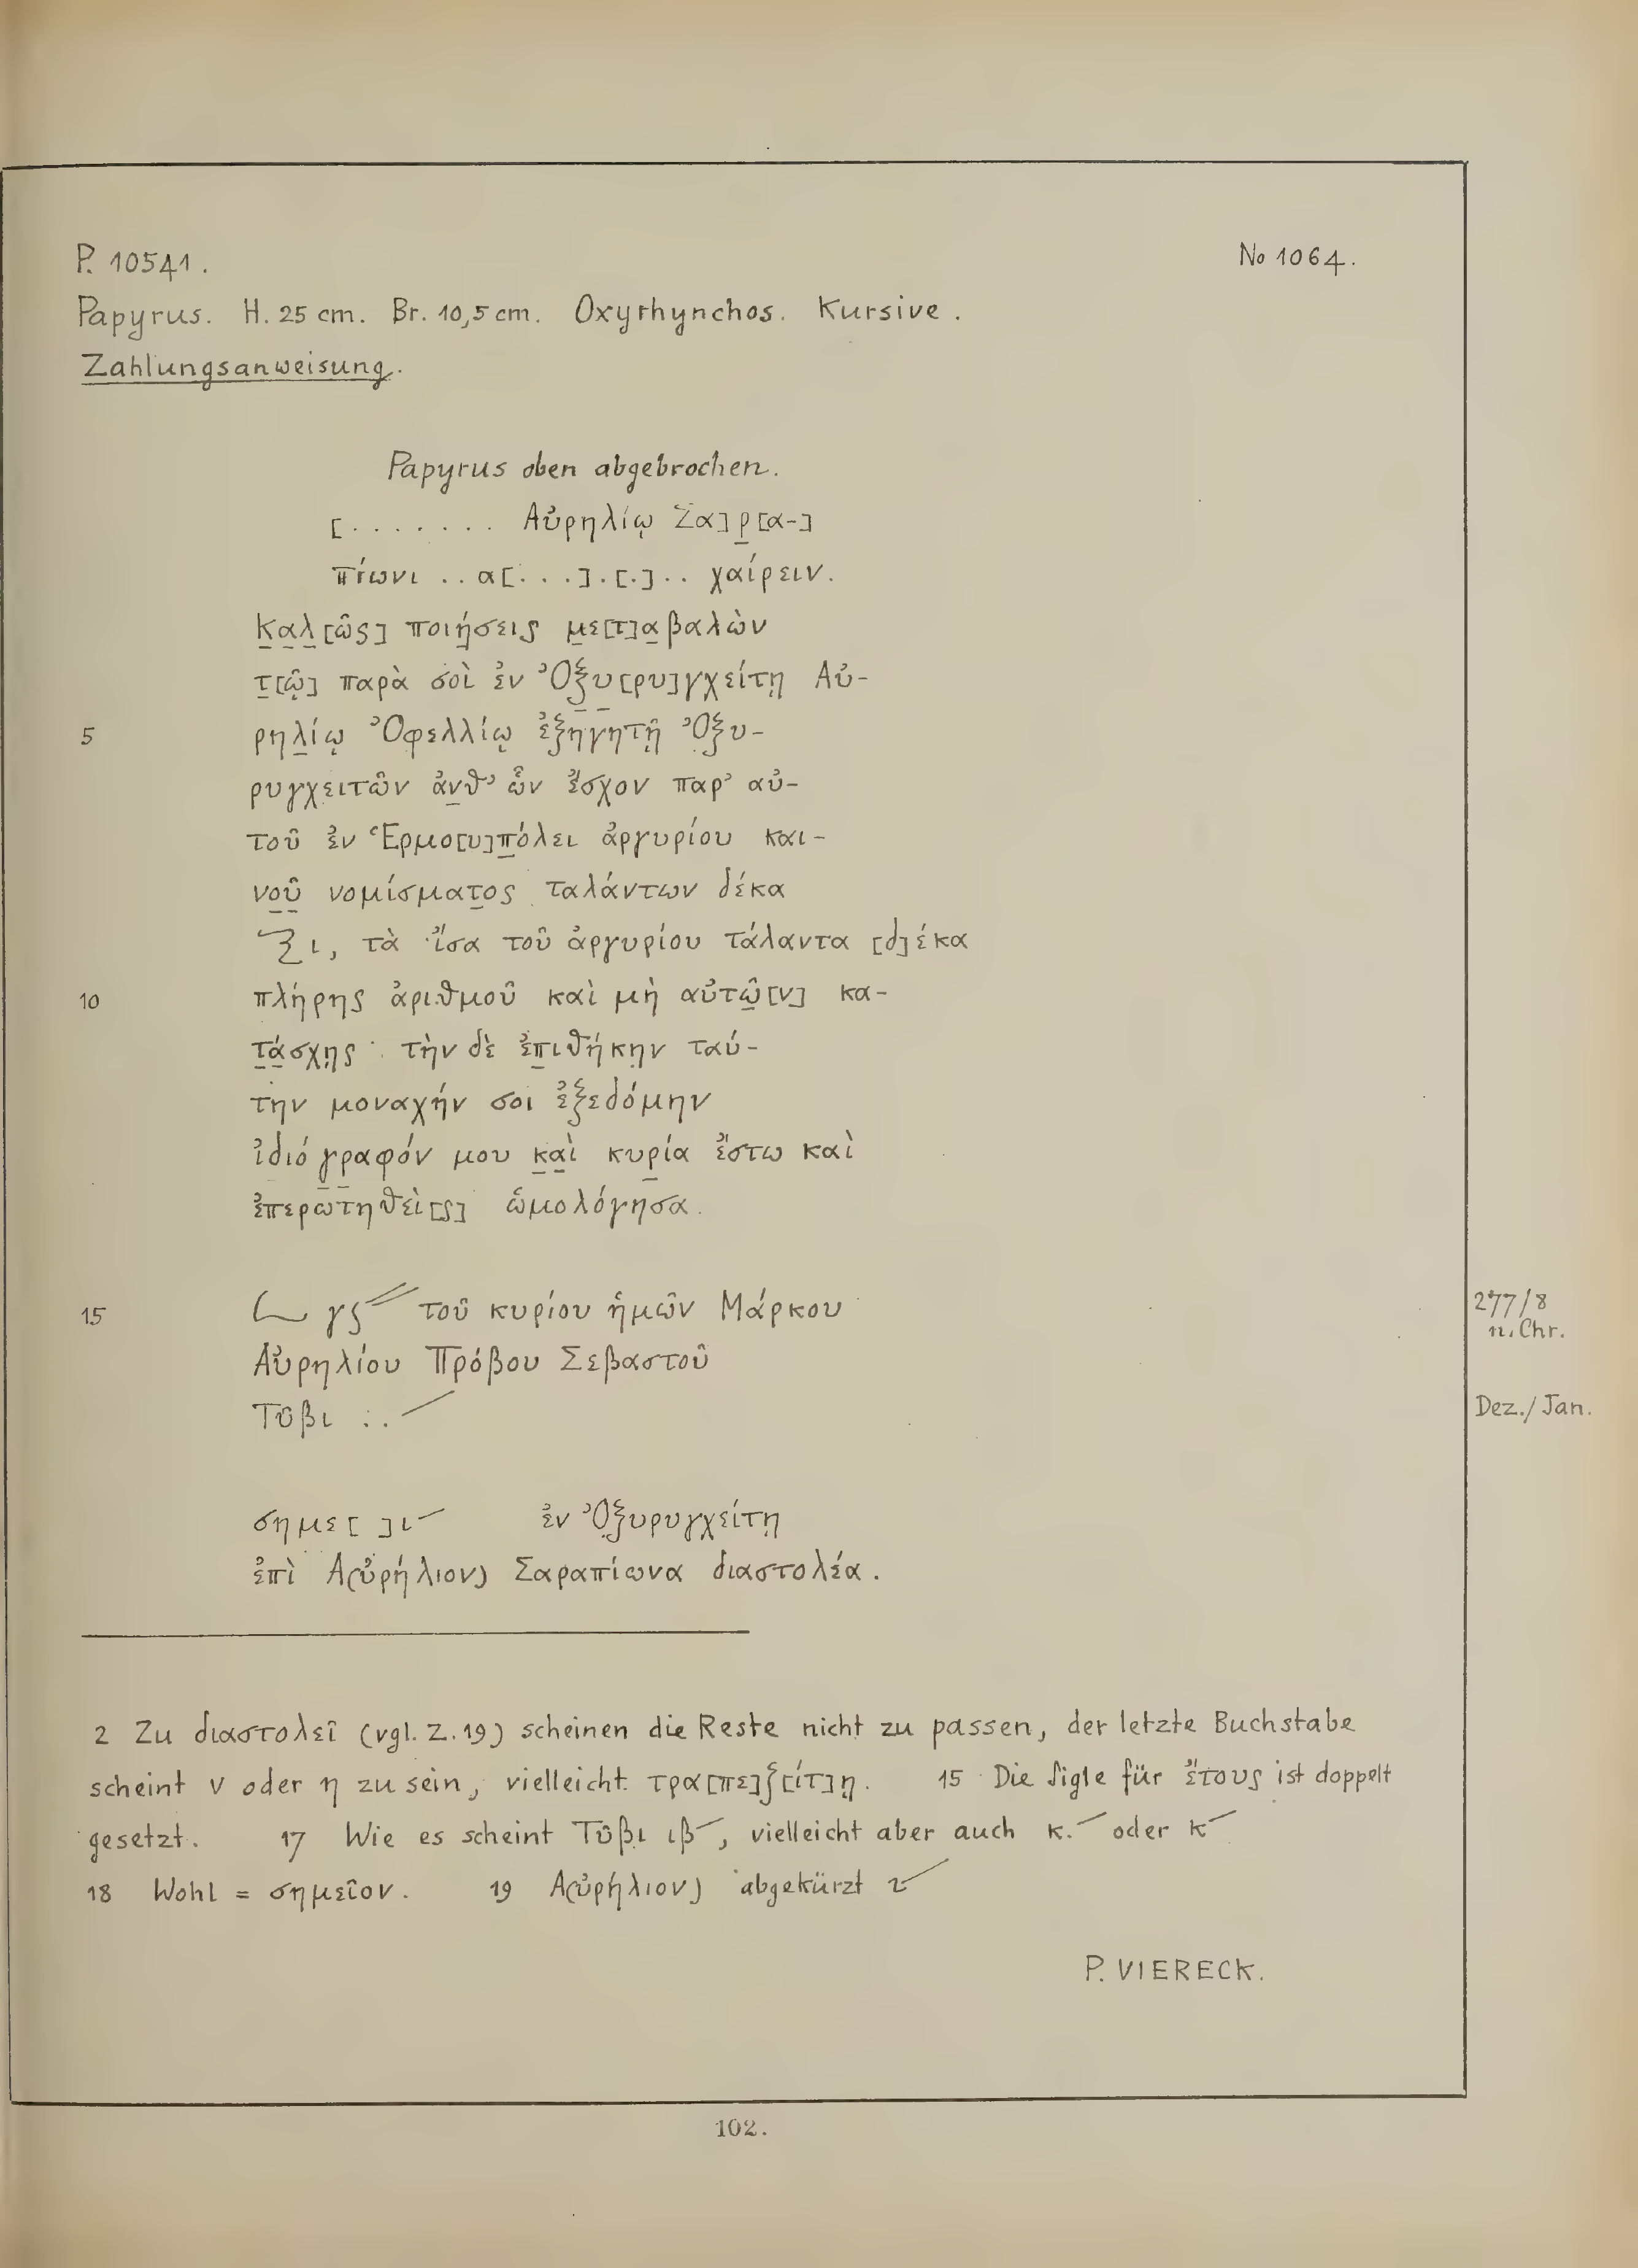 P. 10541. No 1064.
Papyrus. H. 25 cm. Br. 10,5 cm. Oxyrhynchos. Kursive.
Zahlungsanweisung.
Papyrus oben abgebrochen.
[. . . . . . . Αὐρηλίῳ Σα]ρ̣[α-]
πίωνι . . α[. . .] . [.] . . χαίρειν.
Κ̣α̣λ̣[ῶς] ποιή̣σεις μ̣ε[τ]α̣βαλὼν
τ̣[ῷ] παρὰ σοὶ ἐν Ὀξ̣υ̣[ρυ]γχείτῃ Αὐ-
5 ρηλ̣ίῳ Ὀφελλίῳ ἐξηγητῇ Ὀξυ-
ρυγχειτῶν ἀν̣θ’ ὧν ἔσχον παρ’ αὐ-
τοῦ ἐν Ἑρμο[υ]π̣όλει ἀργυρίου και-
νο̣ῦ̣ νομίσματ̣ος ταλάντων δέκα
ι, τὰ ἴσα τοῦ ἀργυρίου τάλαντα [δ]έκα
10 πλήρης ἀριθμοῦ καὶ μὴ αὐτῶ̣[ν] κα-
τ̣ά̣σχῃς· τὴν δὲ ἐπ̣ιθήκην ταύ-
την μοναχήν σοι ἐξεδόμην
ἰδιόγ̣ρ̣αφόν μου κ̣α̣ὶ κυρ̣ία ἔστω καὶ
ἐπερωτηθεὶ[ς] ὡμολόγησα.
15 γς τοῦ κυρίου ἡμῶν Μάρκου 277/8 n. Chr.
Αὐρηλίου Πρόβου Σεβαστοῦ
Τῦβι . . Dez./Jan.
σημε[ ]ι ἐν Ὀξυρυγχείτῃ
ἐπὶ Α(ὐρήλιον) Σαραπίωνα διαστολέα.
2 Zu διαστολεῖ (vgl. Z. 19) scheinen die Reste nicht zu passen, der letzte Buchstabe
scheint ν oder η zu sein, vielleicht τρα[πε]ζ[ίτ]ῃ. 15 Die Sigle für ἔτους ist doppelt
gesetzt. 17 Wie es scheint Τῦβι ιβ, vielleicht aber auch κ. oder κ
18 Wohl = σημεῖον. 19 Α(ὐρήλιον) abgekürzt
P. VIERECK.
102.